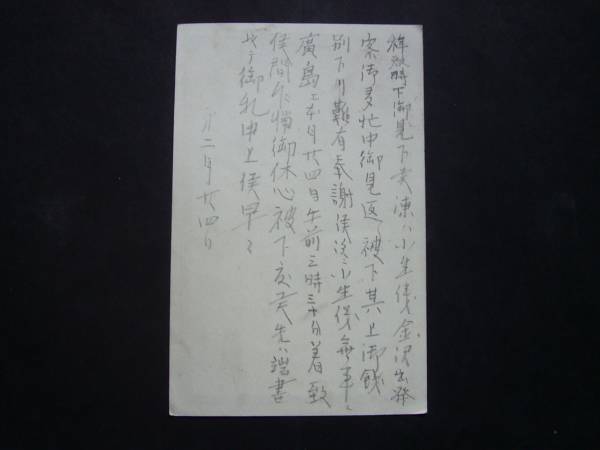 拝啓時下御見下陳ハ小生儀金沢出発
際御多忙中御見送被下其上御餞
別下リ難有奉謝候次ニ小生儀無事ニ
廣島ニ本月廿四日午前三時三十分着致
候間乍憚御休心被下度先ハ端書
ヲ以テ御礼申上候早々
二月廿四日